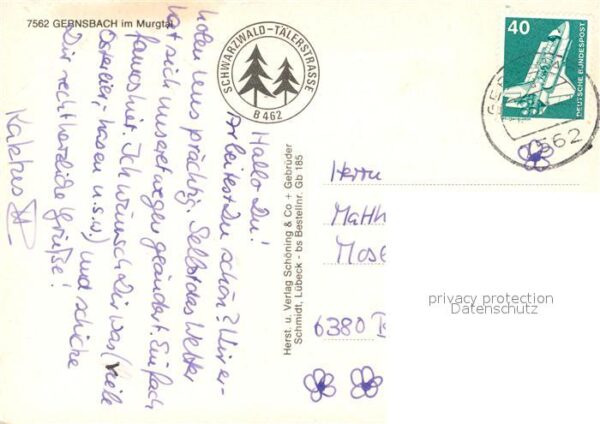 7562 GERNSBACH im Murgtal
SCHWARZWALD-TÄLERSTRASSE
B 462
40
DEUTSCHE BUNDESPOST
7562
Hallo Du!
Arbeitest Du schön? Wir er-
holen uns prächtig. Selbst das Wetter
hat sich unseretwegen geändert. Einfach
famoshet. Ich wünsch Dir was (viele
Ostereier, -hasen u.s.w.) und schicke
Dir recht herzliche Grüße!
Kaktus
Herst. u. Verlag Schöning & Co + Gebrüder
Schmidt, Lübeck - bs Bestellnr. Gb 185
Herrn
Matth
Mose
6380
privacy protection
Datenschutz